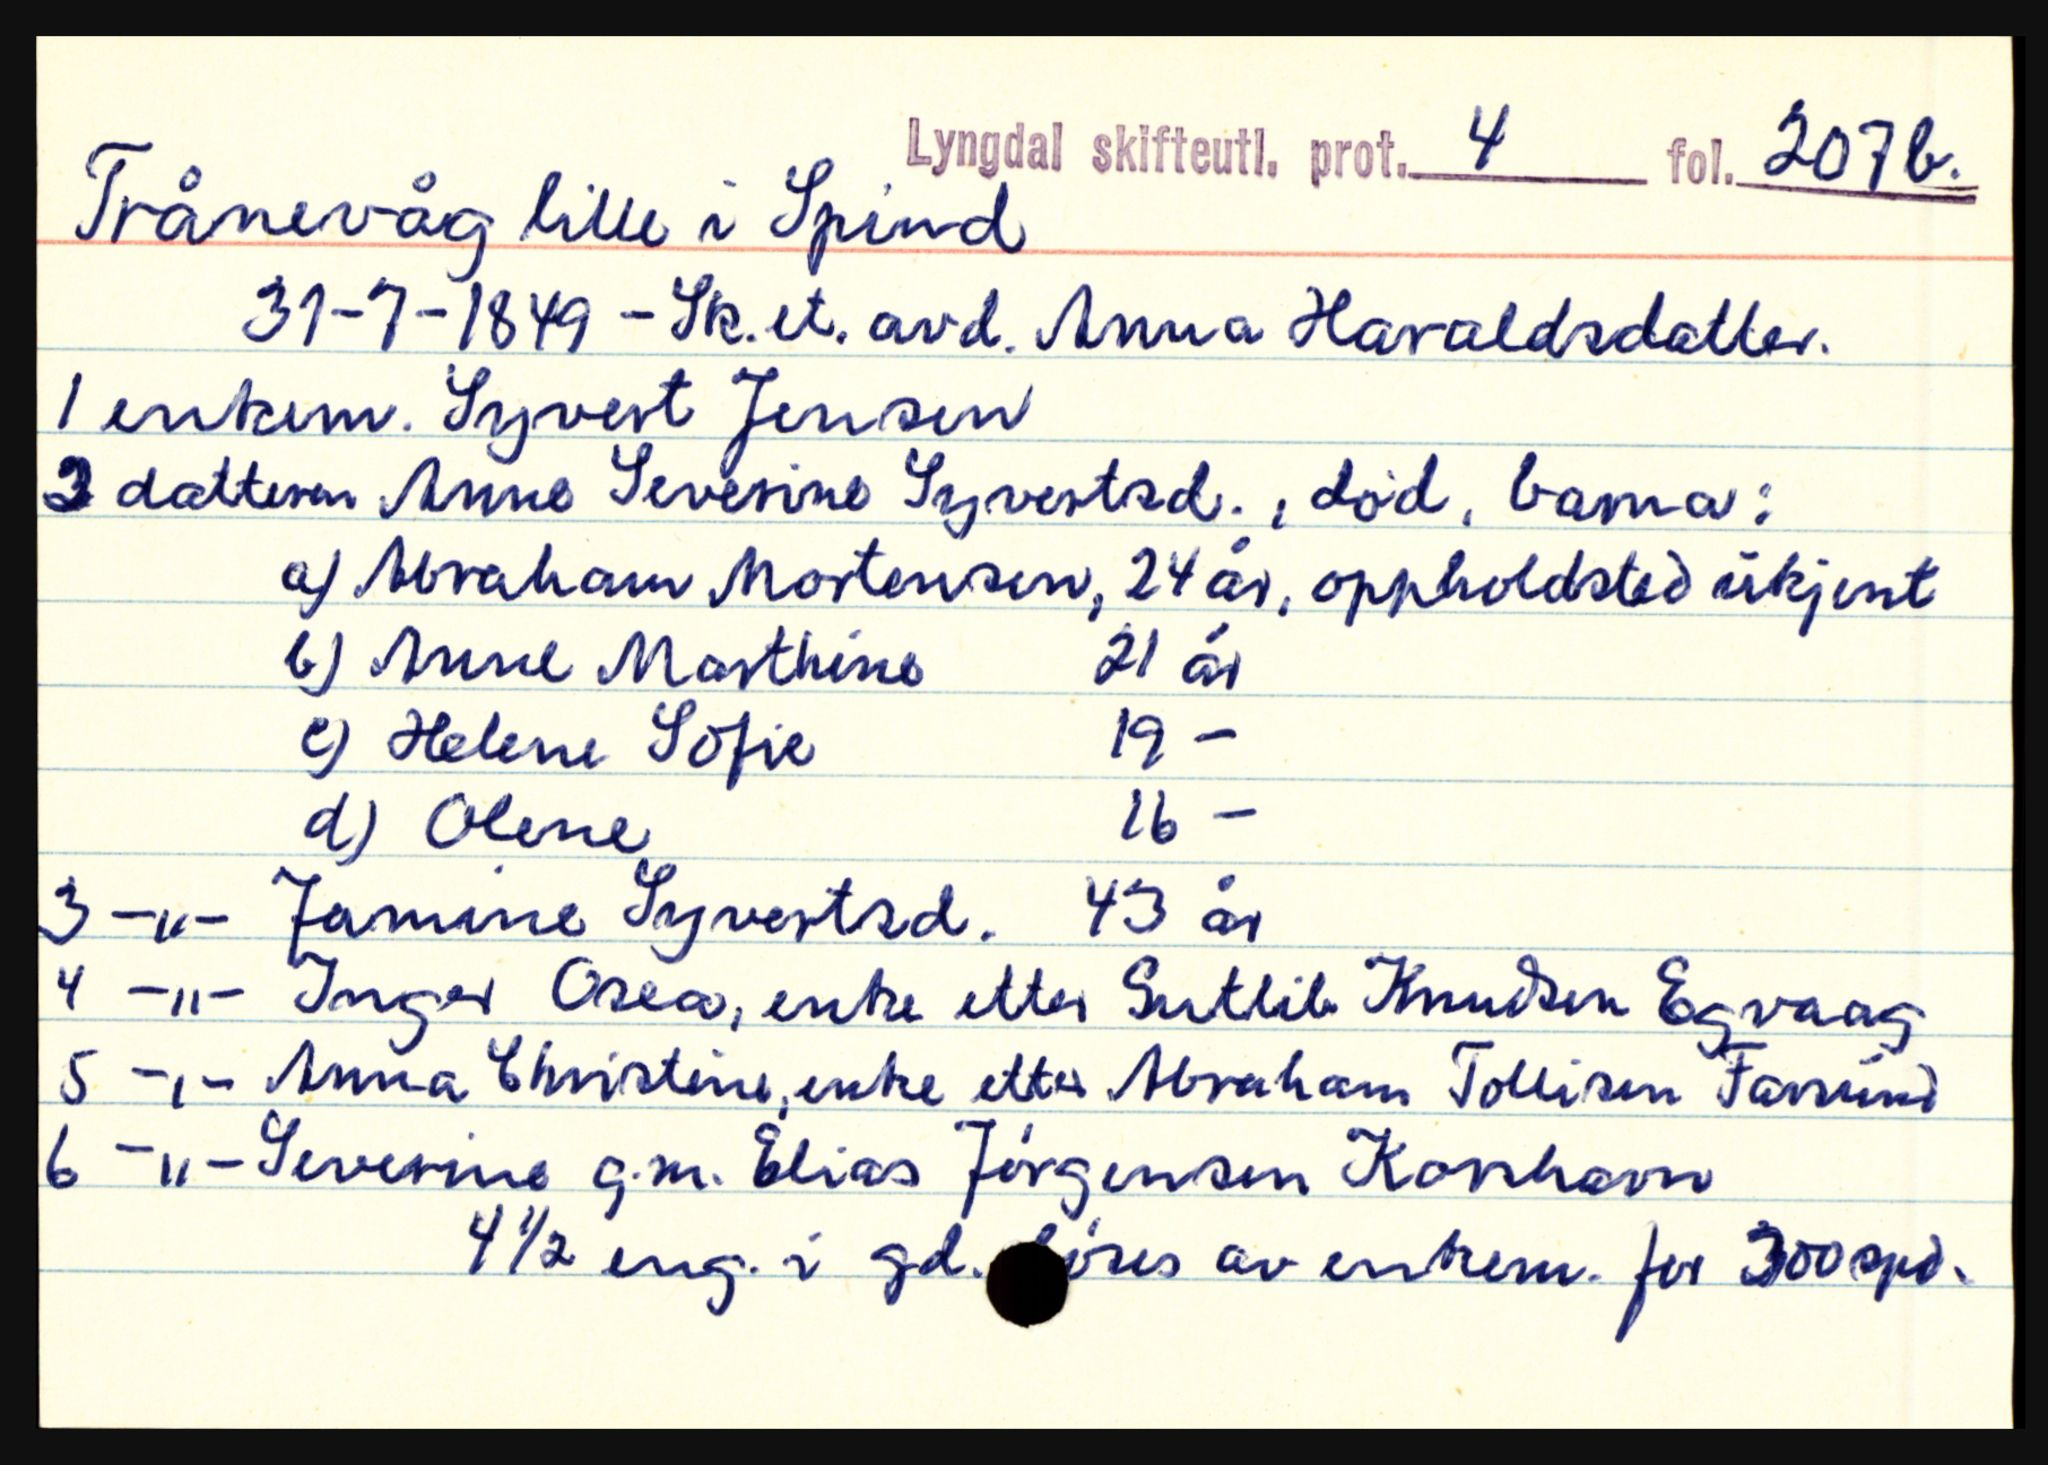 Lyngdal skifteutl. prot. 4 fol. 207b.
Trånevåg lille i Spind
31-7-1849 - Sk. et. avd. Anna Haraldsdatter.
1 enkem. Syvert Jensen
2 datteren Anne Severine Syvertsd., død, barna:
a) Abraham Mortensen, 24 år, oppholdsted ukjent
b) Anne Marthine 21 år
c) Helene Sofie 19 -
d) Olene 16 -
3 -"- Jamine Syvertsd. 43 år
4 -"- Inger Osea, enke etter Gutlib Knudsen Egvaag
5 -"- Anna Christine, enke etter Abraham Tollisen Farsund
6 -"- Severine g.m. Elias Jørgensen Korshavn
4 1/2 eng. i gd. av enkem. for 300 spd.